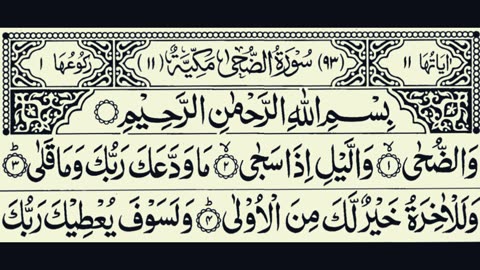 اٰیَاتُهَا ١١ (٩٣) سُوْرَةُ الضُّحٰى مَكِّيَّةٌ (١١) رُكُوْعُهَا ١
بِسْمِ اللّٰهِ الرَّحْمٰنِ الرَّحِيْمِ
وَالضُّحٰى ۙ‏﴿١﴾ وَالَّيْلِ اِذَا سَجٰى ۙ‏﴿٢﴾ مَا وَدَّعَكَ رَبُّكَ وَمَا قَلٰى ؕ‏﴿٣﴾
وَلَلْاٰخِرَةُ خَيْرٌ لَّكَ مِنَ الْاُوْلٰى ؕ‏﴿٤﴾ وَلَسَوْفَ يُعْطِيْكَ رَبُّكَ